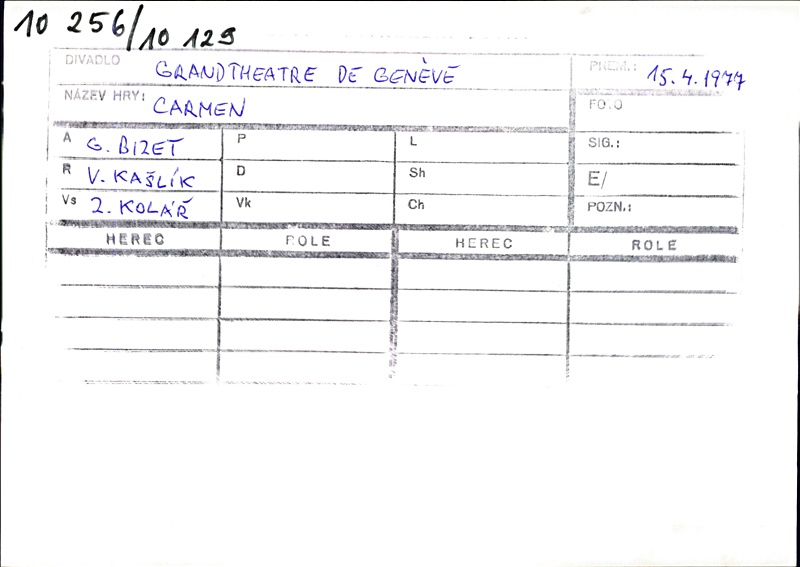 10 256/10 129
DIVADLO GRANDTHEATRE DE GENÈVE PREM.: 15.4.1977
NÁZEV HRY: CARMEN FOTO
A G. BIZET P L SIG.:
R V. KAŠLÍK D Sh E/
Vs Z. KOLÁŘ Vk Ch POZN.:
HEREC ROLE HEREC ROLE